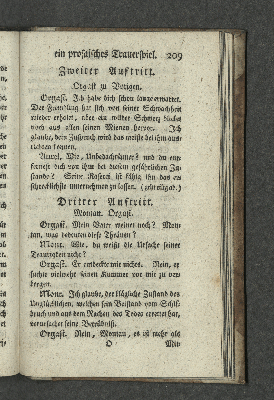 ein prosaisches Trauerspiel. 209
Zweiter Auftritt.
Orgast zu Vorigen.
Orgast. Ich habe dich schon lang erwartet.
Der Fremdling hat sich von seiner Schwachheit
wieder erholet, aber ein wilder Schmerz blicket
noch aus allen seinen Mienen hervor. Ich
glaube, dein Zuspruch wird das meiste bei ihm aus-
richten können.
Wie, Unbedachtsamer! und du ent-
fernest dich von ihm bei diesem gefährlichen Zu-
stande? Seine Raserei ist fähig ihn das er-
schrecklichste unternehmen zu lassen. (geht eilgad.)
Dritter Auftritt.
Montan. Orgast.
Orgast. Mein Vater weinet noch? Mon-
tan, was bedeuten diese Thränen?
Mont. Wie, du weißt die Ursache seiner
Traurigkeit nicht?
Orgast. Er entdeckte mir nichts. Nein, er
suchte vielmehr seinen Kummer vor mir zu ver-
bergen.
Mont. Ich glaube, der klägliche Zustand des
Unglücklichen, welchen sein Beistand vom Schif-
bruch und aus dem Rachen des Todes errettet hat,
verursachet seine Betrübniß.
Orgast. Nein, Montan, es ist mehr als
O Mit-